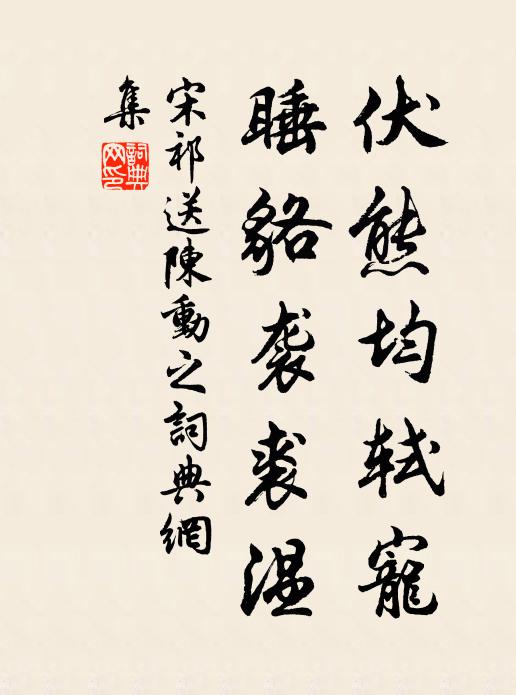 伏熊均轼寵
睡貉袭裘温
宋祁送陳動之詞典網
集
詞典
网印